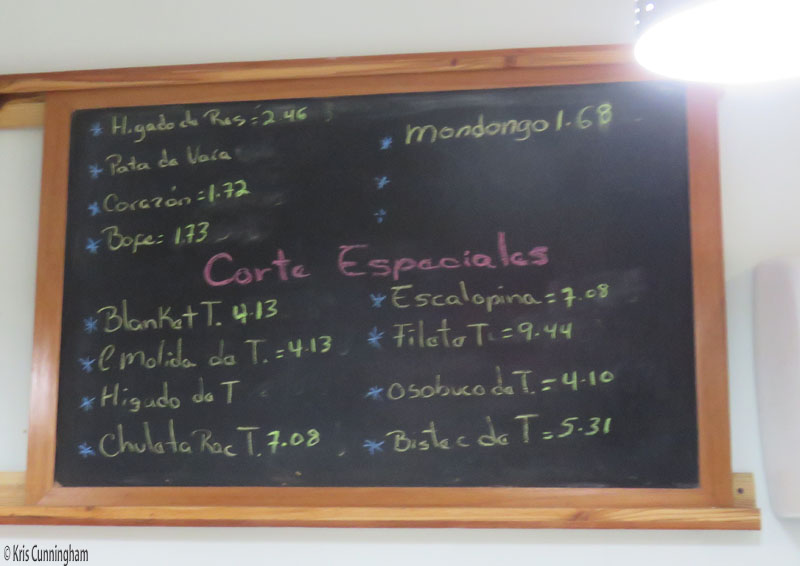 * Higado de Res = 2.46
* Pata de Vaca
* Corazón = 1.72
* Bofe = 1.73
* Mondongo 1.68
*
*
Corte Especiales
* Blanket T. 4.13
* C Molida de T. = 4.13
* Higado de T
* Chuleta Rac T. 7.08
* Escalopina = 7.08
* Filete T. = 9.44
* Osobuco de T. = 4.10
* Bistec de T = 5.31
© Kris Cunningham